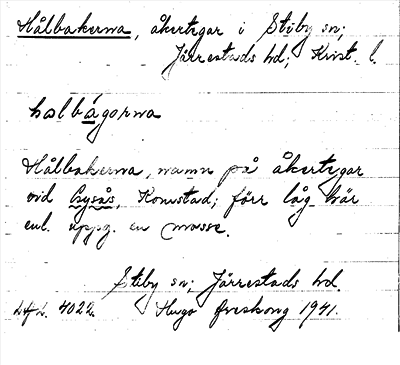 Hålbakerna, åkertegar i Stiby sn;
Järrestads hd; Krist. l.
halbágorna
Hålbakerna, namn på åkertegar
vid Gysås, Komstad; förr låg här
enl. uppg. en mosse.
Stiby sn; Järrestads hd.
4022. Hugo Areskoug 1941.